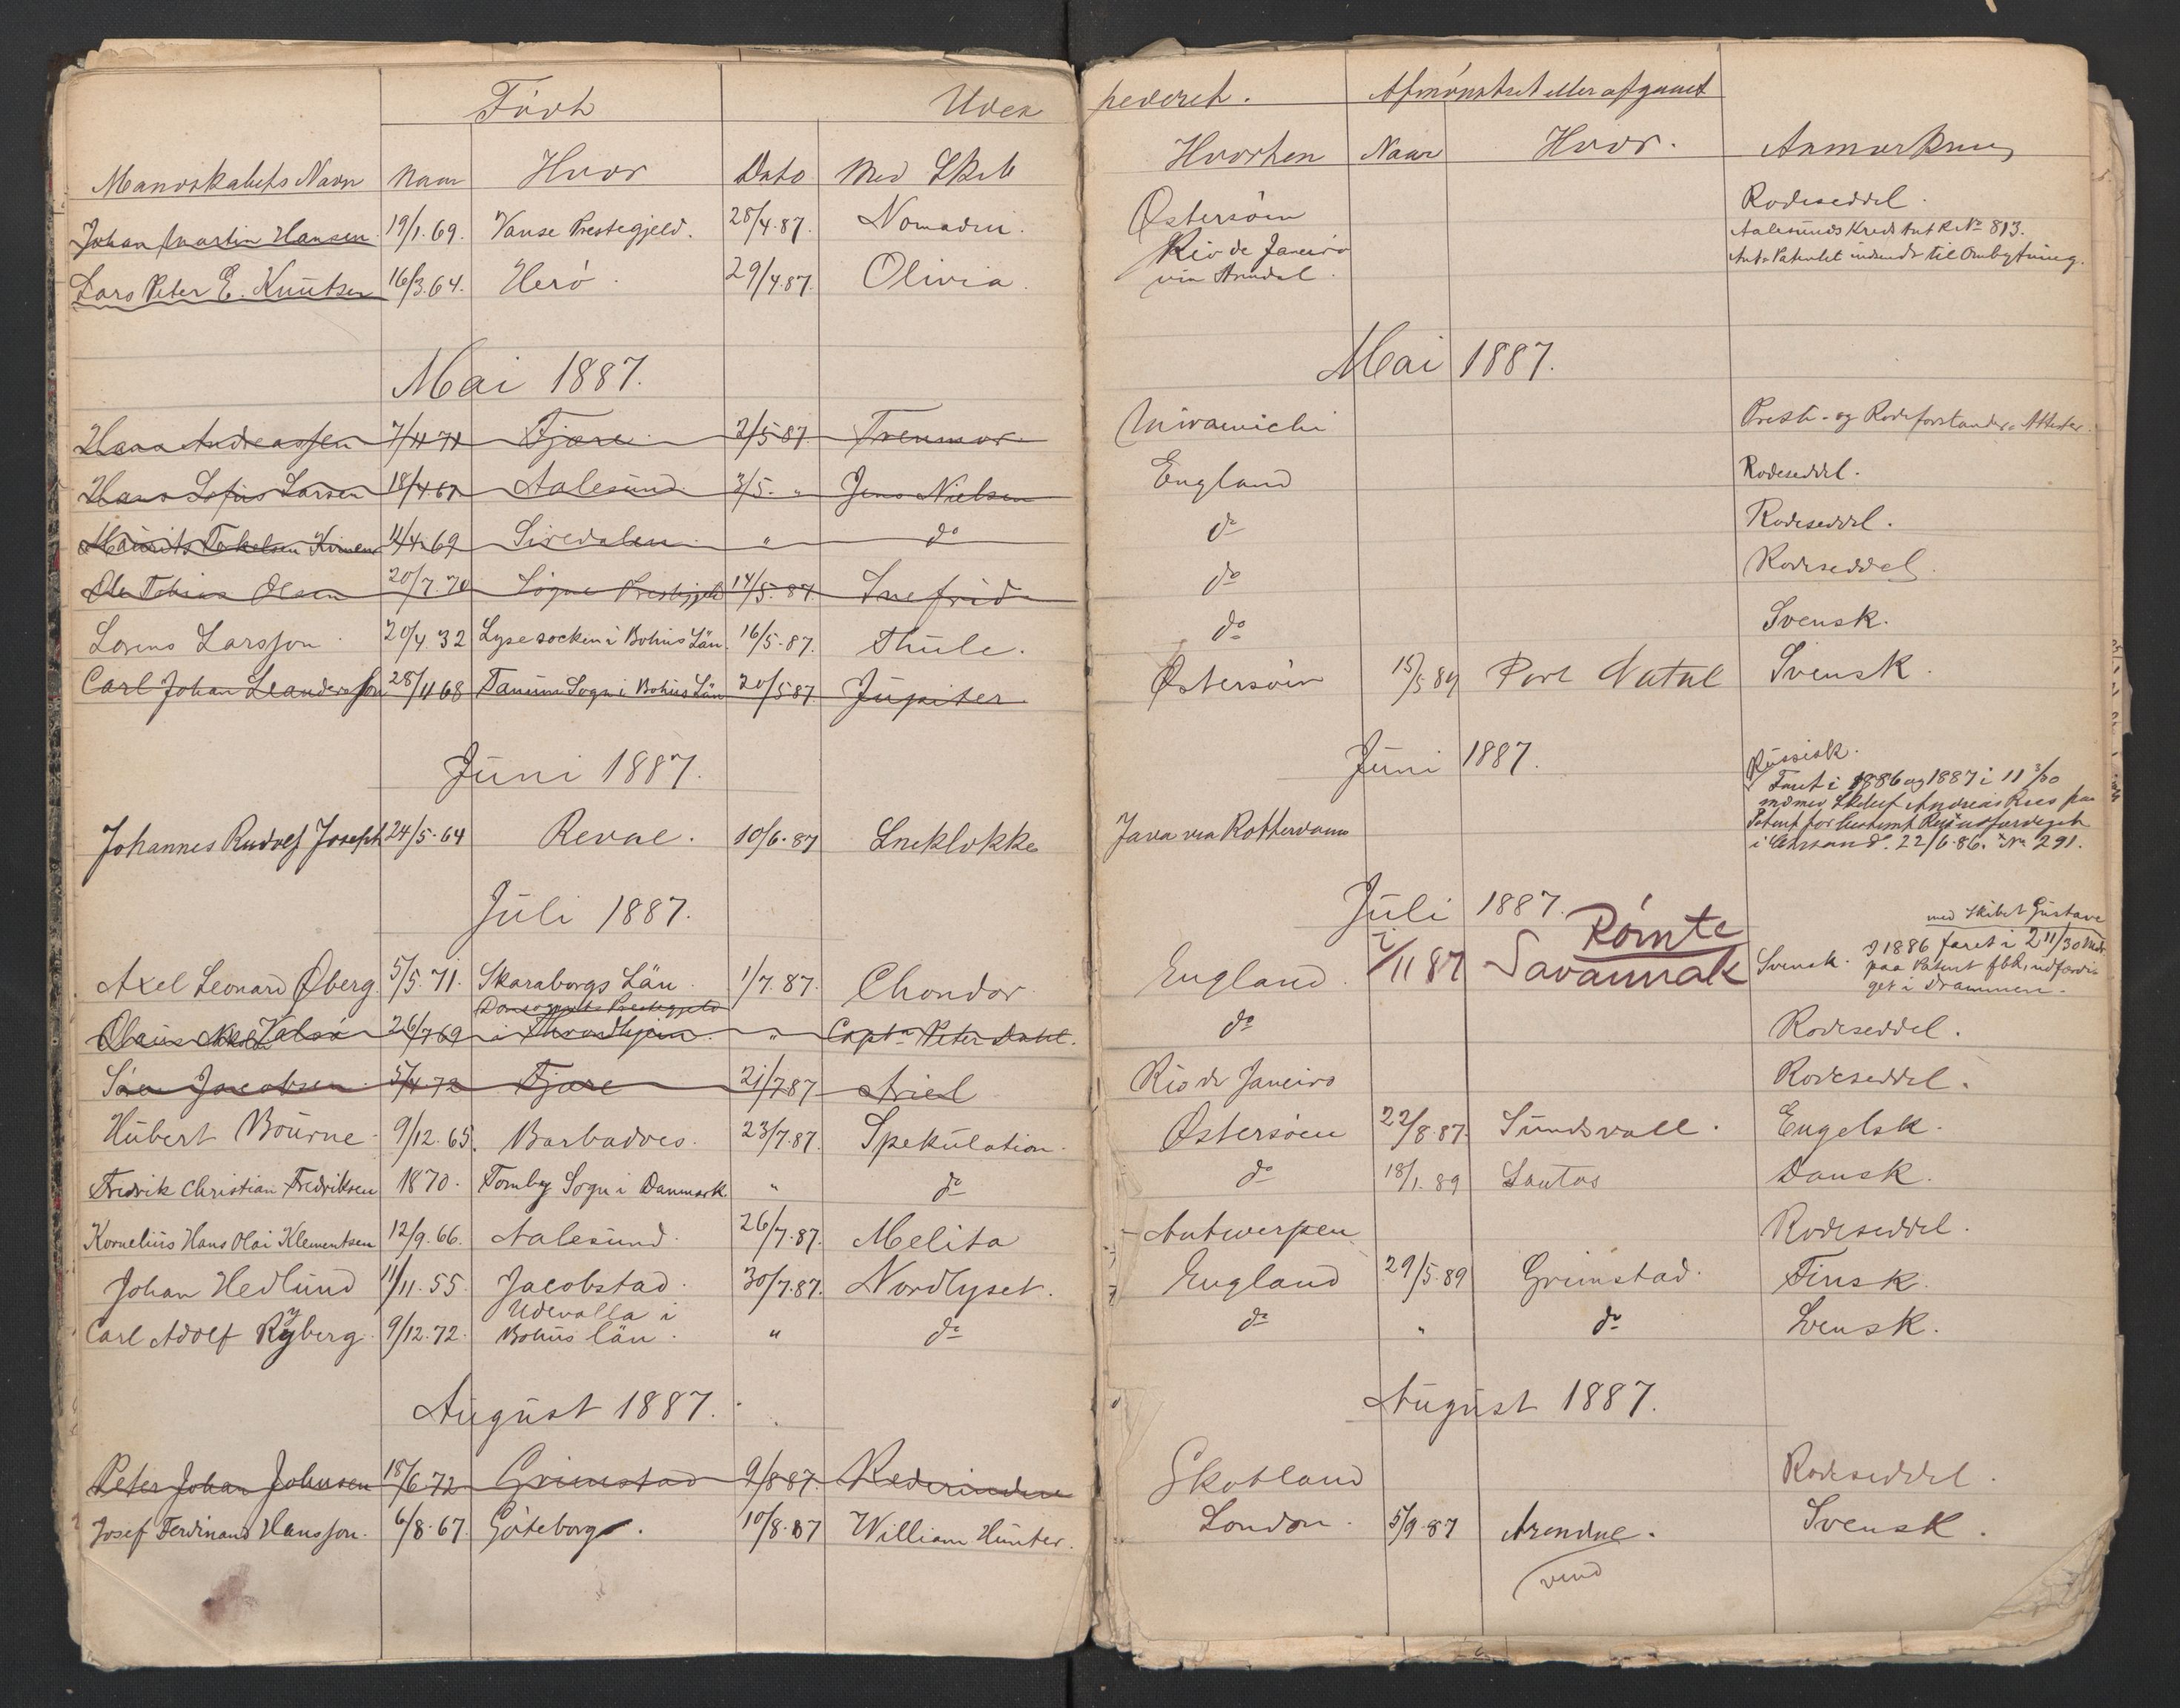 Født Uden
Mandskabets Navn Naar Hvor Dato Med Skib
Johan Martin Hansen 19/1.69. Vanse Prestegjeld. 28/4.87. Nomaden.
Lars Peter E. Knutsen 16/3.64. Herö. 29/4.87. Olivia.
Mai 1887.
Hans Andreassen 7/4 71 Fjære 2/5 87 Trenmor
Hans Sofus Larsen 18/4 67 Aalesund 3/5. " Jens Nielsen
Maurits Terkelsen 11/4 69 Siredalen " do
Ole Tobias Olsen 20/7.70 Sögne Prestegjeld 14/5.87. Snefrid
Lorens Larsson 20/4 32 Lysesocken i Bohus Län. 16/5.87. Thule.
Carl Johan Leandersson 28/11 68 Tanum Sogn i Bohus Län 20/5 87 Jupiter
Juni 1887.
Johannes Rudolf Joseph 24/5.64 Reval. 10/6.87 Sneklokke
Juli 1887.
Axel Leonard Øberg 5/5.71. Skaraborgs Län 1/7.87. Chondor
Prestegjeld
Olaus 26/7 69 i Throndhjem " Captn Peter Dahl.
Sören Jacobsen 5/4 72 Fjære 21/7 87 Ariel
Hubert Bourne 9/12.65. Barbadoes. 23/7.87. Spekulation.
Fredrik Christian Fredriksen 1870. Tomby Sogn i Danmark " do
Kornelius Hans Olai Klementsen 12/9.66. Aalesund. 26/7.87. Melita
Johan Hedlund 11/11.55. Jacobstad. 30/7.87. Nordlyset.
Udevalla i
Carl Adolf Ryberg 9/12.72. Bohus län. " do
August 1887.
Peter Johan Johnsen 18/6 72 Grimstad 9/8 87. Rederinden
Josef Ferdinand Hansson. 6/8.67. Göteborg. 10/8.87 William Hunter.
pederet. Afmønstret eller afgaaet
Hvorhen Naar Hvor. Anmærkning
Østersöen Rodeseddel.
Rio de Janeiro Aalesunds Kreds No 813.
via Arendal. Patentet indsendt til Ombytning.
Mai 1887.
Miramichi Prest- og Rodeforstander Attester.
England Rodeseddel.
do Rodeseddel.
do Rodeseddel.
do Svensk.
Østersöen 15/5 89 Port Natal Svensk.
Juni 1887.
Russisk.
Faret i 1886 og 1887 i 11 3/30
Java via Rotterdam mdr med Skibet Andreas Riis paa
Patent
i Chrsand. 22/6.86. No. 291.
Juli 1887.
Römte med Skibet Gustave
England. 2/11 87 Savannah Svensk. I 1886 faret i 2 11/30 Mdr
paa Patent
get i Drammen.
do Rodeseddel.
Rio de Janeiro Rodeseddel.
Østersöen 22/8.87. Sundsvall. Engelsk.
do 18/1.89 Santos Dansk.
Antwerpen Rodeseddel.
England 29/5.89 Grimstad. Finsk.
do " do Svensk.
August 1887.
Skotland Rodeseddel.
London. 5/9.87 Arendal. Svensk.
vend